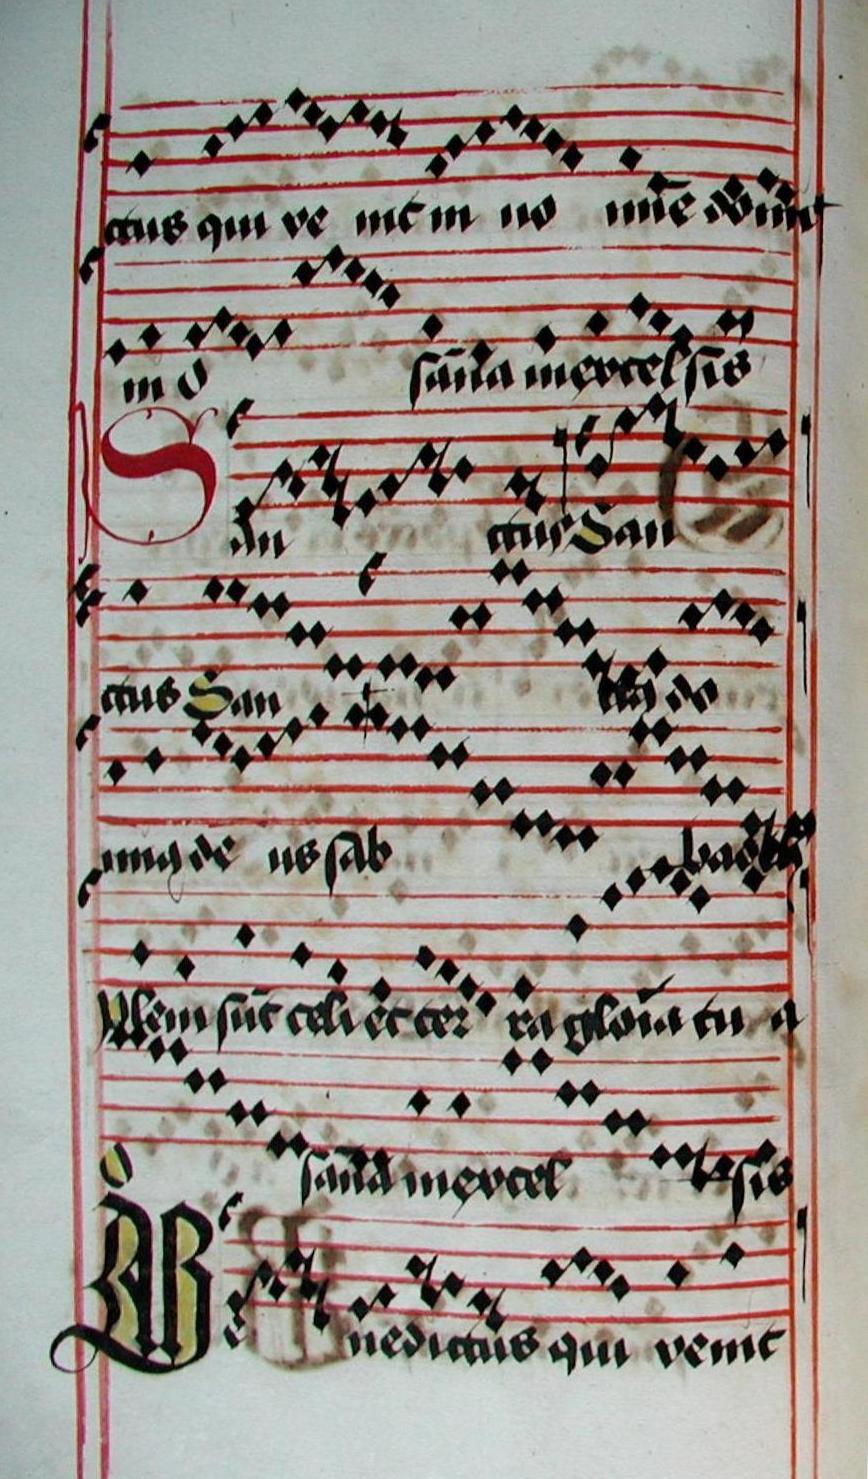 ctus qui ve nit in no mīe dōmi
in o sāna in excel sis
San ctus San
ctus San ctus do
minus de us sab baoth
Pleni sūt celi et ter ra gloīa tu a
o sāna in excel sis
Be nedictus qui venit